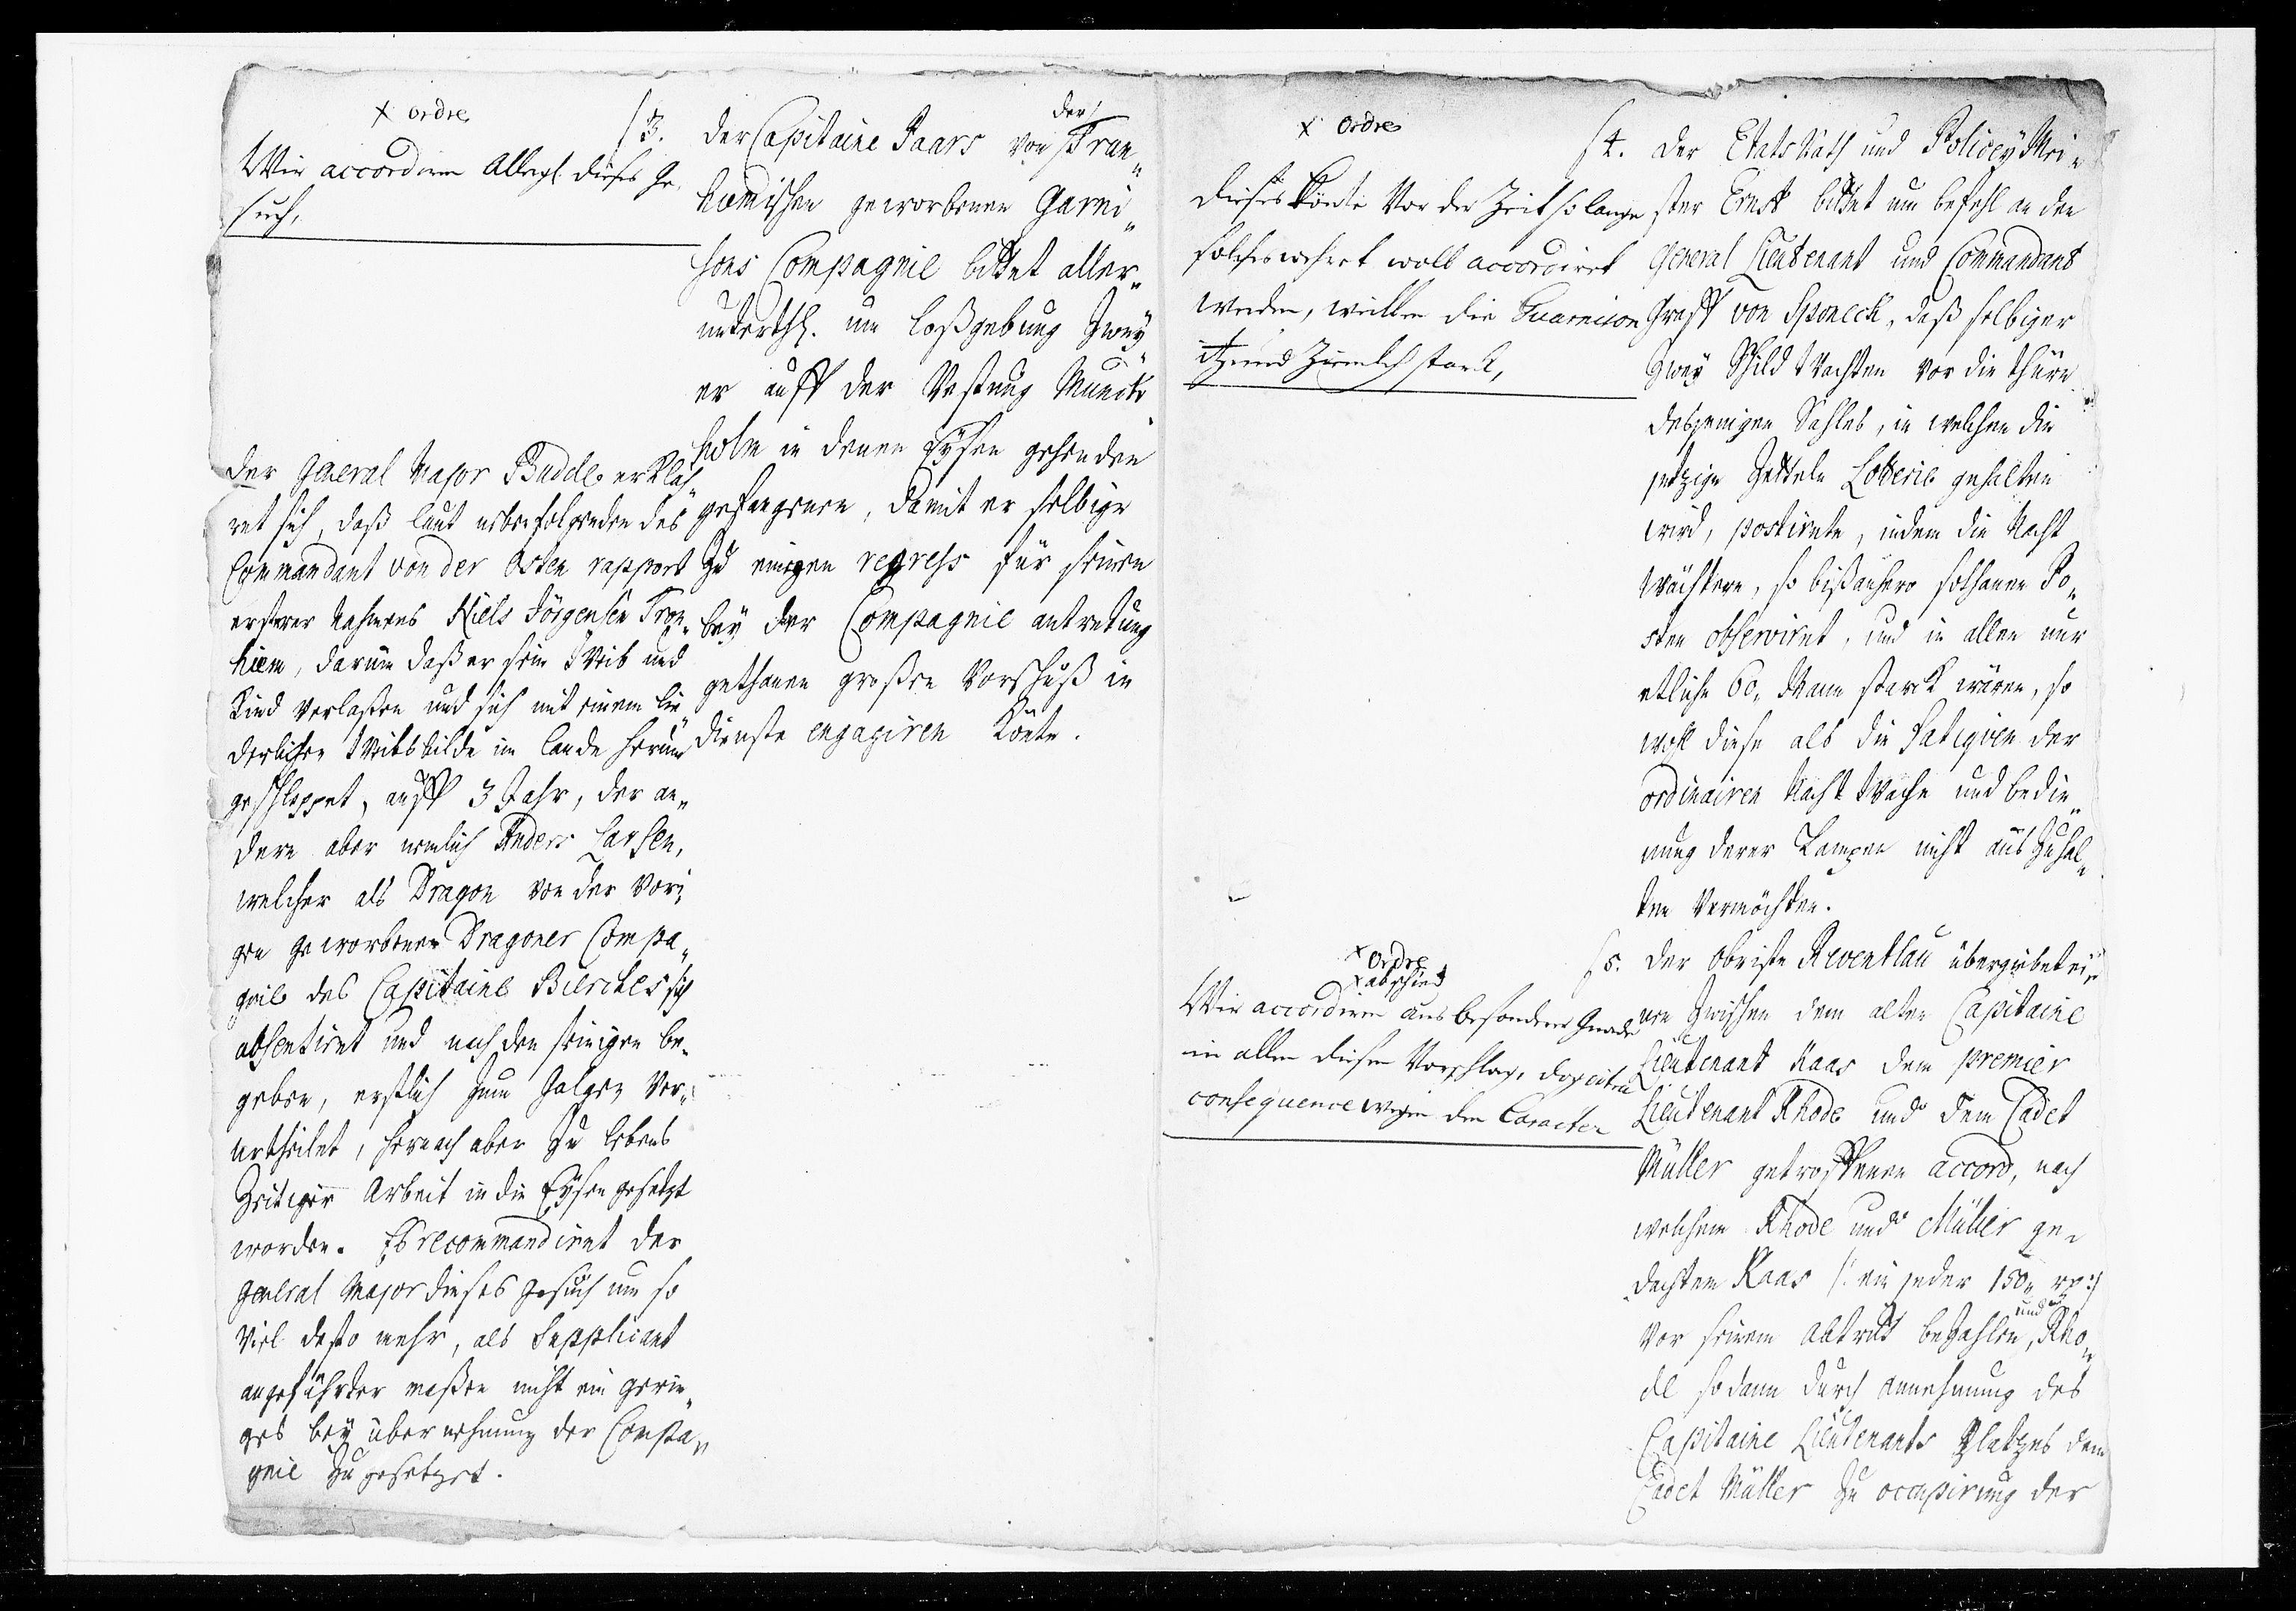 x ordre
Wir accordiren Allergl. dieses Ge-
such,
/3. Der Capitaine Paars von der Tron„
hiemischen geworbenen Garni„
sons Compagnie bittet aller„
unterthl. um loßgebung Zwey„
er auff der Vestung Munck„
holm in denen Eysen gehenden
gefangenen, damit er selbige
Zu einigen regress für seinen
bey der Compagnie antretung
gethanen großen Vorschuß in
dienste engagiren könte.
Der General Major Budde erkläh„
ret sich, daß laut nebenfolgenden des
Commandant von der Osten rapport
ersterer Nahmens Niels Jörgensen Tron„
hiem, darum daß er sein Weib und
Kind verlaßen und sich mit einem lie„
derlichen Weibsbilde im lande herum
geschleppet, auff 3 Jahr, der an„
dere aber nemlich Anders Larsen,
welcher als Dragon von der vori„
gen geworbenen Dragoner Compa„
gnie des Capitaine Bierckes sich
absentiret und nach den seinigen be„
geben, erstlich zum Galgen ver„
urtheilet, hernach aber zu lebens
Zeitiger Arbeit in die Eysen gesetzt
worden. Es recommandiret der
General Major dieses gesuch um so
viel desto mehr, als Supplicant
angeführter maßen nicht ein gerin„
ges bey übernehmung der Compa„
gnie zugesetzet.
x Ordre
Dieses könte Vor der Zeit so lange
solches wehret woll accordiret
werden, weillen die Guarnison
itzund Zimlich starck,
/4. Der Etats Rath und Policey Mei„
ster Ernst bittet um befehl an den
General Lieutenant und Commandant
Graff von Sponeck, daß selbiger
Zwey Schild Wachten vor die Thüre
desjenigen Sahles, in welchen die
jetzige Zetteln Lotterie gehalten
wird, postirete, indem die Nacht
Wächtere, so bißanhero sothanen Po„
sten observiret, und in allen nur
etliche 60„ Mann starck wären, so
wohl diese als die Fatiguen der
ordinairen Nacht Wache und bedie„
nung derer Lampen nicht aus Zuhal„
ten vermöchten.
x Ordre
x abschied
Wir accordiren aus besondern Gnade
in allen diesen Vorschlag, doch ohne
consequence wegen den Caracter
/5. Der Obriste Reventlau übergiebet ei„
nen Zwischen dem alten Capitaine
Lieutenant Kaas dem premier
Lieutenant Rhode und dem Cadet
Müller getroffenen accord, nach
welchem Rhode und Müller ge„
dachten Kaas /: ein jeder 150„ rx :/
vor seinem abtritt bezahlen, und Rho„
de sodann durch annehmung des
Capitaine Lieutenants Platzes dem
Cadet Müller Zu occupirung der